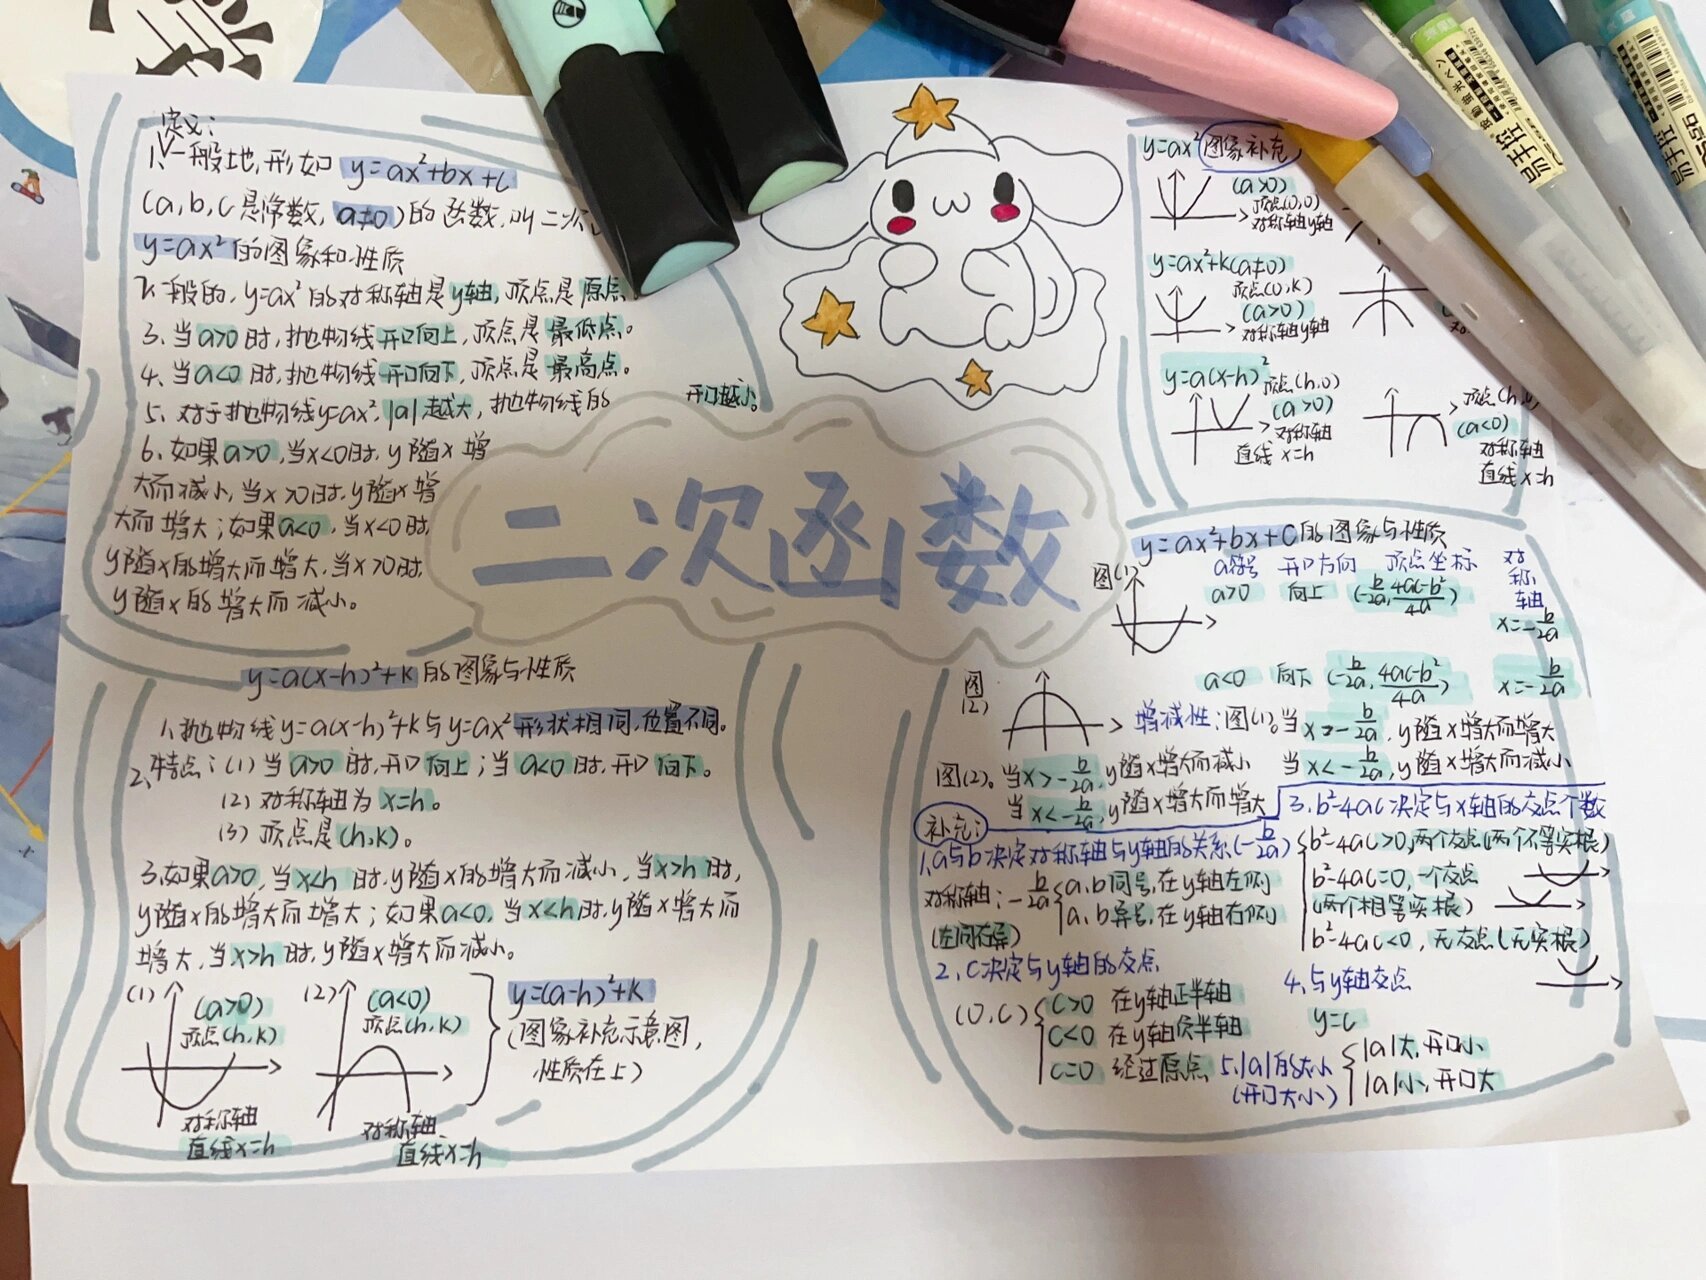 二次函数
定义:
1.一般地,形如 y=ax²+bx+c
(a,b,c是常数,a≠0)的函数,叫二次
y=ax²的图象和性质
2.一般的,y=ax²的对称轴是y轴,顶点是原点。
3.当a>0时,抛物线开口向上,顶点是最低点。
4.当a<0时,抛物线开口向下,顶点是最高点。
5.对于抛物线y=ax²,|a|越大,抛物线的 开口越小。
6.如果a>0,当x<0时,y随x增
大而减小,当x>0时,y随x增
大而增大;如果a<0,当x<0时,
y随x的增大而增大,当x>0时,
y随x的增大而减小。
y=ax² 图象补充
(a>0)
顶点(0,0)
对称轴y轴
y=ax²+k(a≠0)
顶点(0,k)
(a>0)
对称轴y轴
y=a(x-h)²
顶点(h,0)
(a>0)
对称轴
直线x=h
(a<0)
对称轴
直线x=h
y=a(x-h)²+k的图象与性质
1.抛物线y=a(x-h)²+k与y=ax²形状相同,位置不同。
2.特点:(1)当a>0时,开口向上;当a<0时,开口向下。
(2)对称轴为x=h。
(3)顶点是(h,k)。
3.如果a>0,当x<h时,y随x的增大而减小,当x>h时,
y随x的增大而增大;如果a<0,当x<h时,y随x增大而
增大,当x>h时,y随x增大而减小。
(1) (a>0)
顶点(h,k)
对称轴
直线x=h
(2) (a<0)
顶点(h,k)
对称轴
直线x=h
y=(a-h)²+k
(图象补充示意图,
性质在上)
y=ax²+bx+c的图象与性质
图(1) a符号 开口方向 顶点坐标 对称轴
a>0 向上 (-b/2a, 4ac-b²/4a) x=-b/2a
a<0 向下 (-b/2a, 4ac-b²/4a) x=-b/2a
图(2)
增减性:图(1),当x>-b/2a,y随x增大而增大
当x<-b/2a,y随x增大而减小
图(2),当x>-b/2a,y随x增大而减小
当x<-b/2a,y随x增大而增大
补充:
1.a与b决定对称轴与y轴的关系(-b/2a)
对称轴:-b/2a a,b同号,在y轴左侧
a,b异号,在y轴右侧
(左同右异)
2.C决定与y轴的交点
(0,c) c>0 在y轴正半轴
c<0 在y轴负半轴
c=0 经过原点
3.b²-4ac决定与x轴的交点个数
b²-4ac>0,两个交点(两个不等实根)
b²-4ac=0,一个交点
(两个相等实根)
b²-4ac<0,无交点(无实根)
4.与y轴交点
y=c
5.|a|的大小
(开口大小)
|a|大,开口小
|a|小,开口大